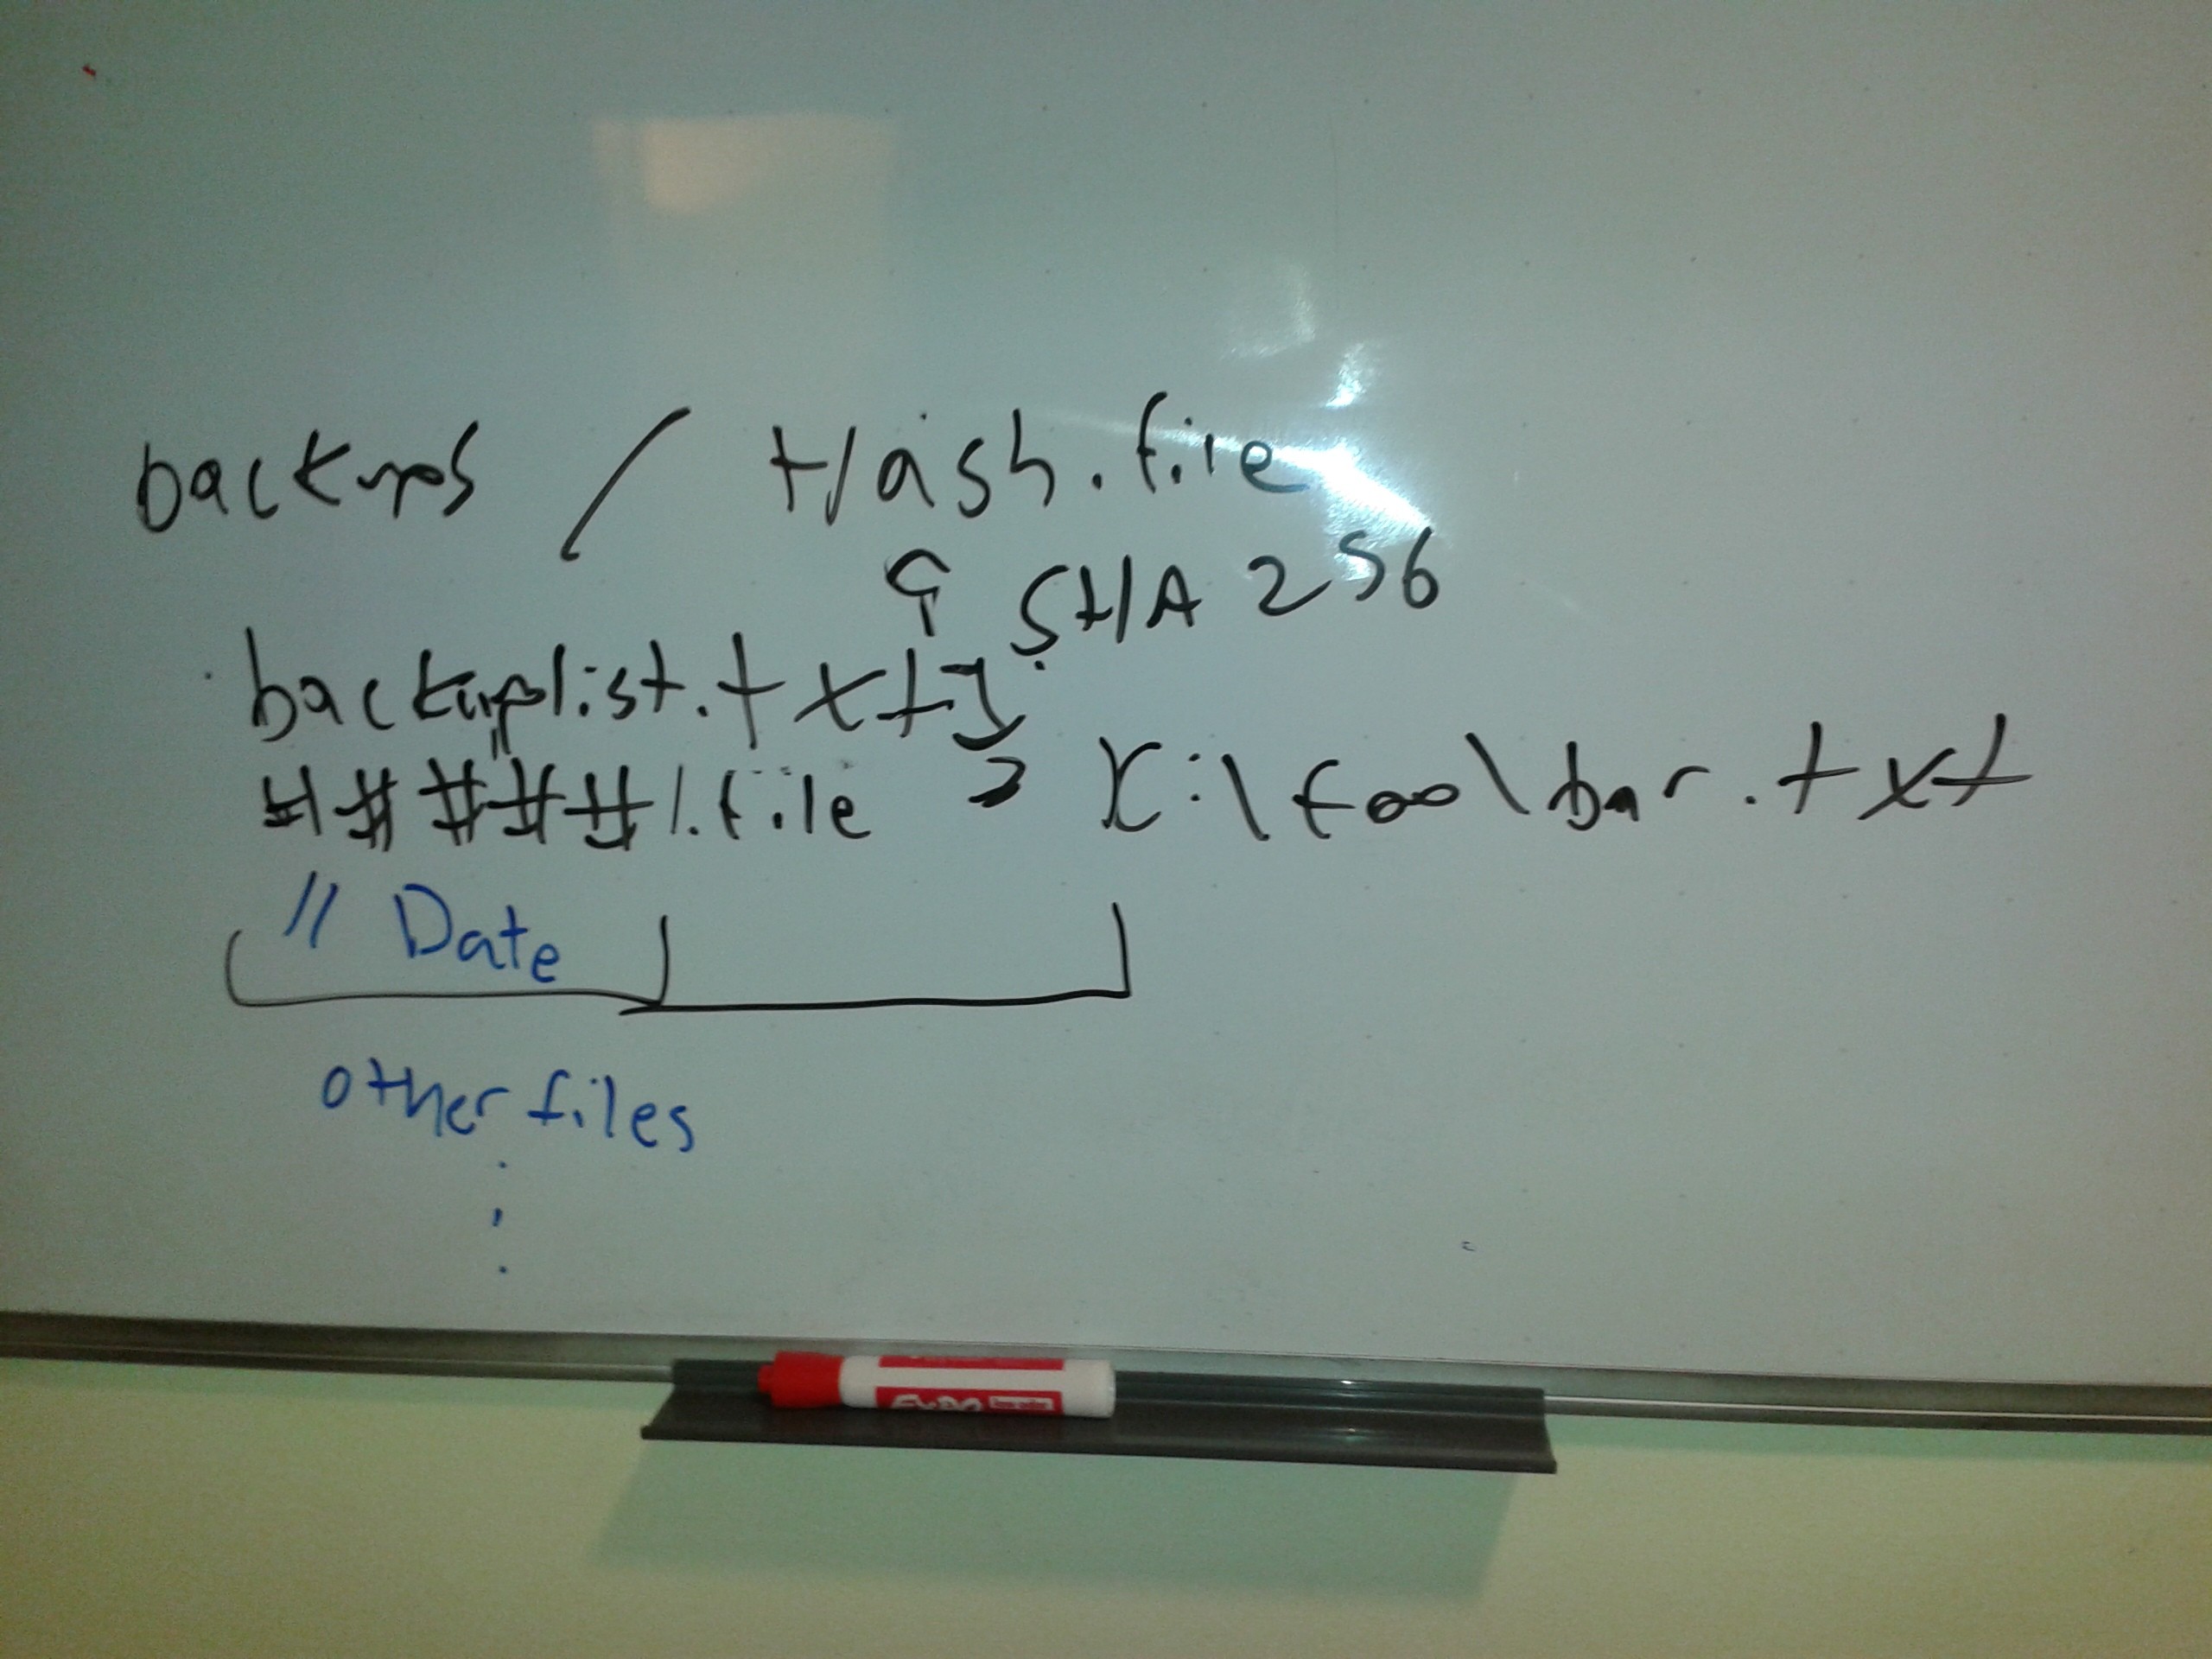 backups / Hash.file
SHA 256
backuplist.txt
#####1.file X:\foo\bar.txt
// Date
other files
EXPO